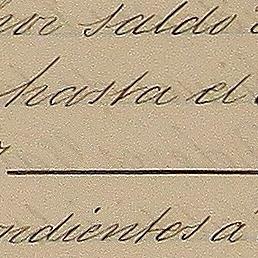 por saldo
hasta el
ndientes á